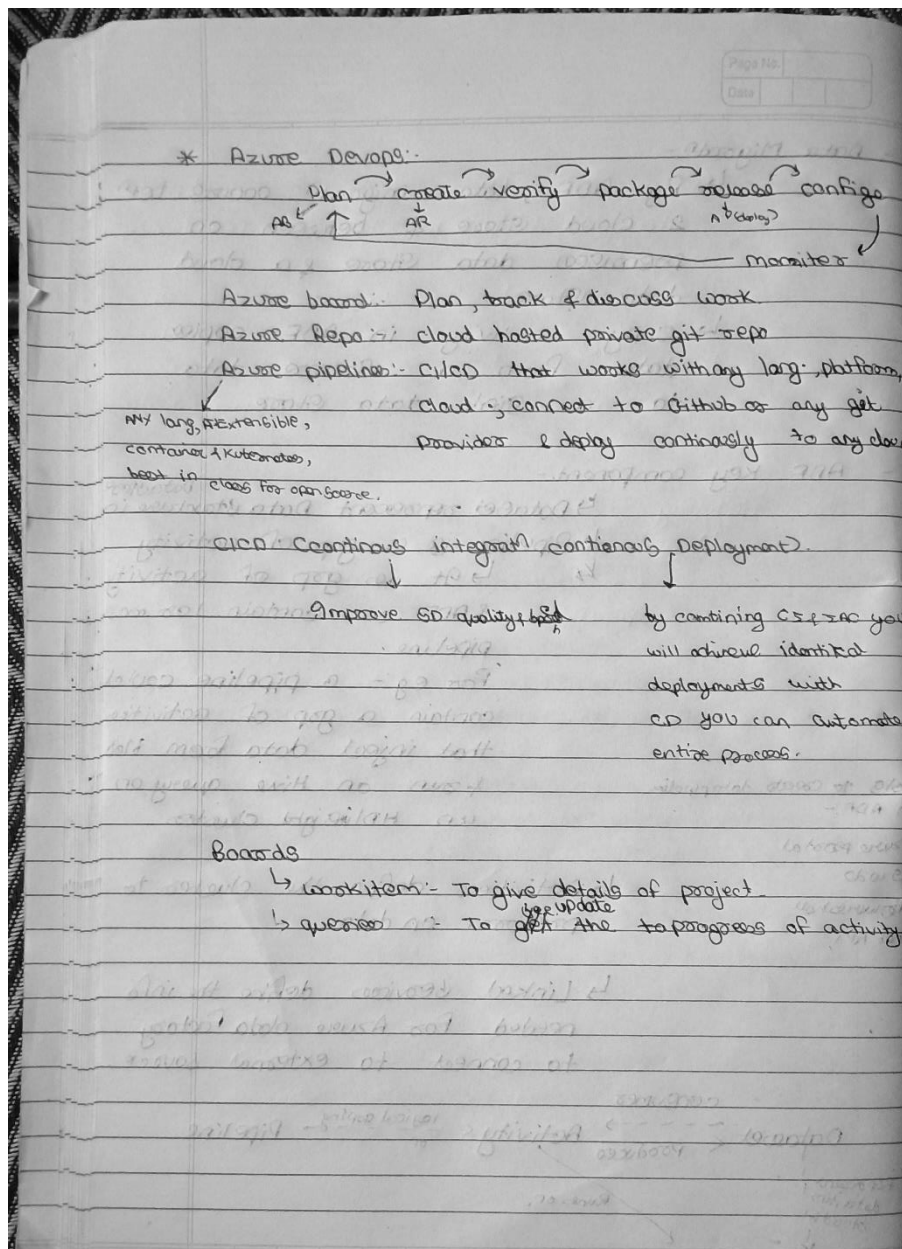 Page No.
Date
* Azure Devops:-
Plan create verify package release config
AB AR (deploy)
moniter
Azure board:- Plan, track & discuss work
Azure Repo:-: cloud hosted private git repo
Azure pipelines:- CI/CD that works with any lang., platform,
cloud ., connect to Github or any git
provider & deploy continously to any clou
ANY lang, Extensible,
container & Kubernetes,
best in class for open source.
CICD (continous integratn, contienous Deployment).
Improve SD quality &
by combining CI & IAC you
will achieve identikal
deployments with
CD you can automate
entire process.
Boards
↳ workitem:- To give details of project
update
↳ queries :- To get the progress of activity